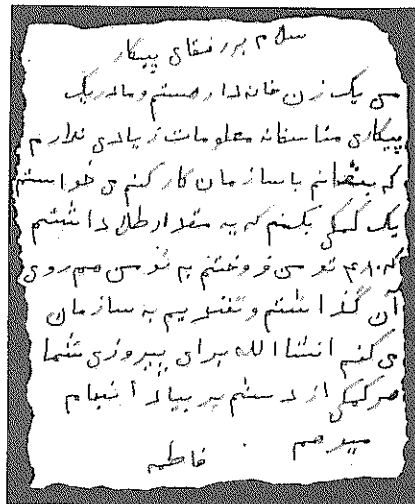 سلام بر رفقای پیکار
من یک زن خانه دار هستم و مادر یک
پیکاری متاسفانه معلومات زیادی ندارم
که بتوانم با سازمان کار کنم می خواستم
یک کمکی بکنم که یه مقدار طلا داشتم
که تومن فروختم یه تومن هم روی
آن گذاشتم و تقدیم به سازمان
می کنم انشاالله برای پیروزی شما
هر کمکی از دستم بر بیاد انجام
میدهم
فاطمه